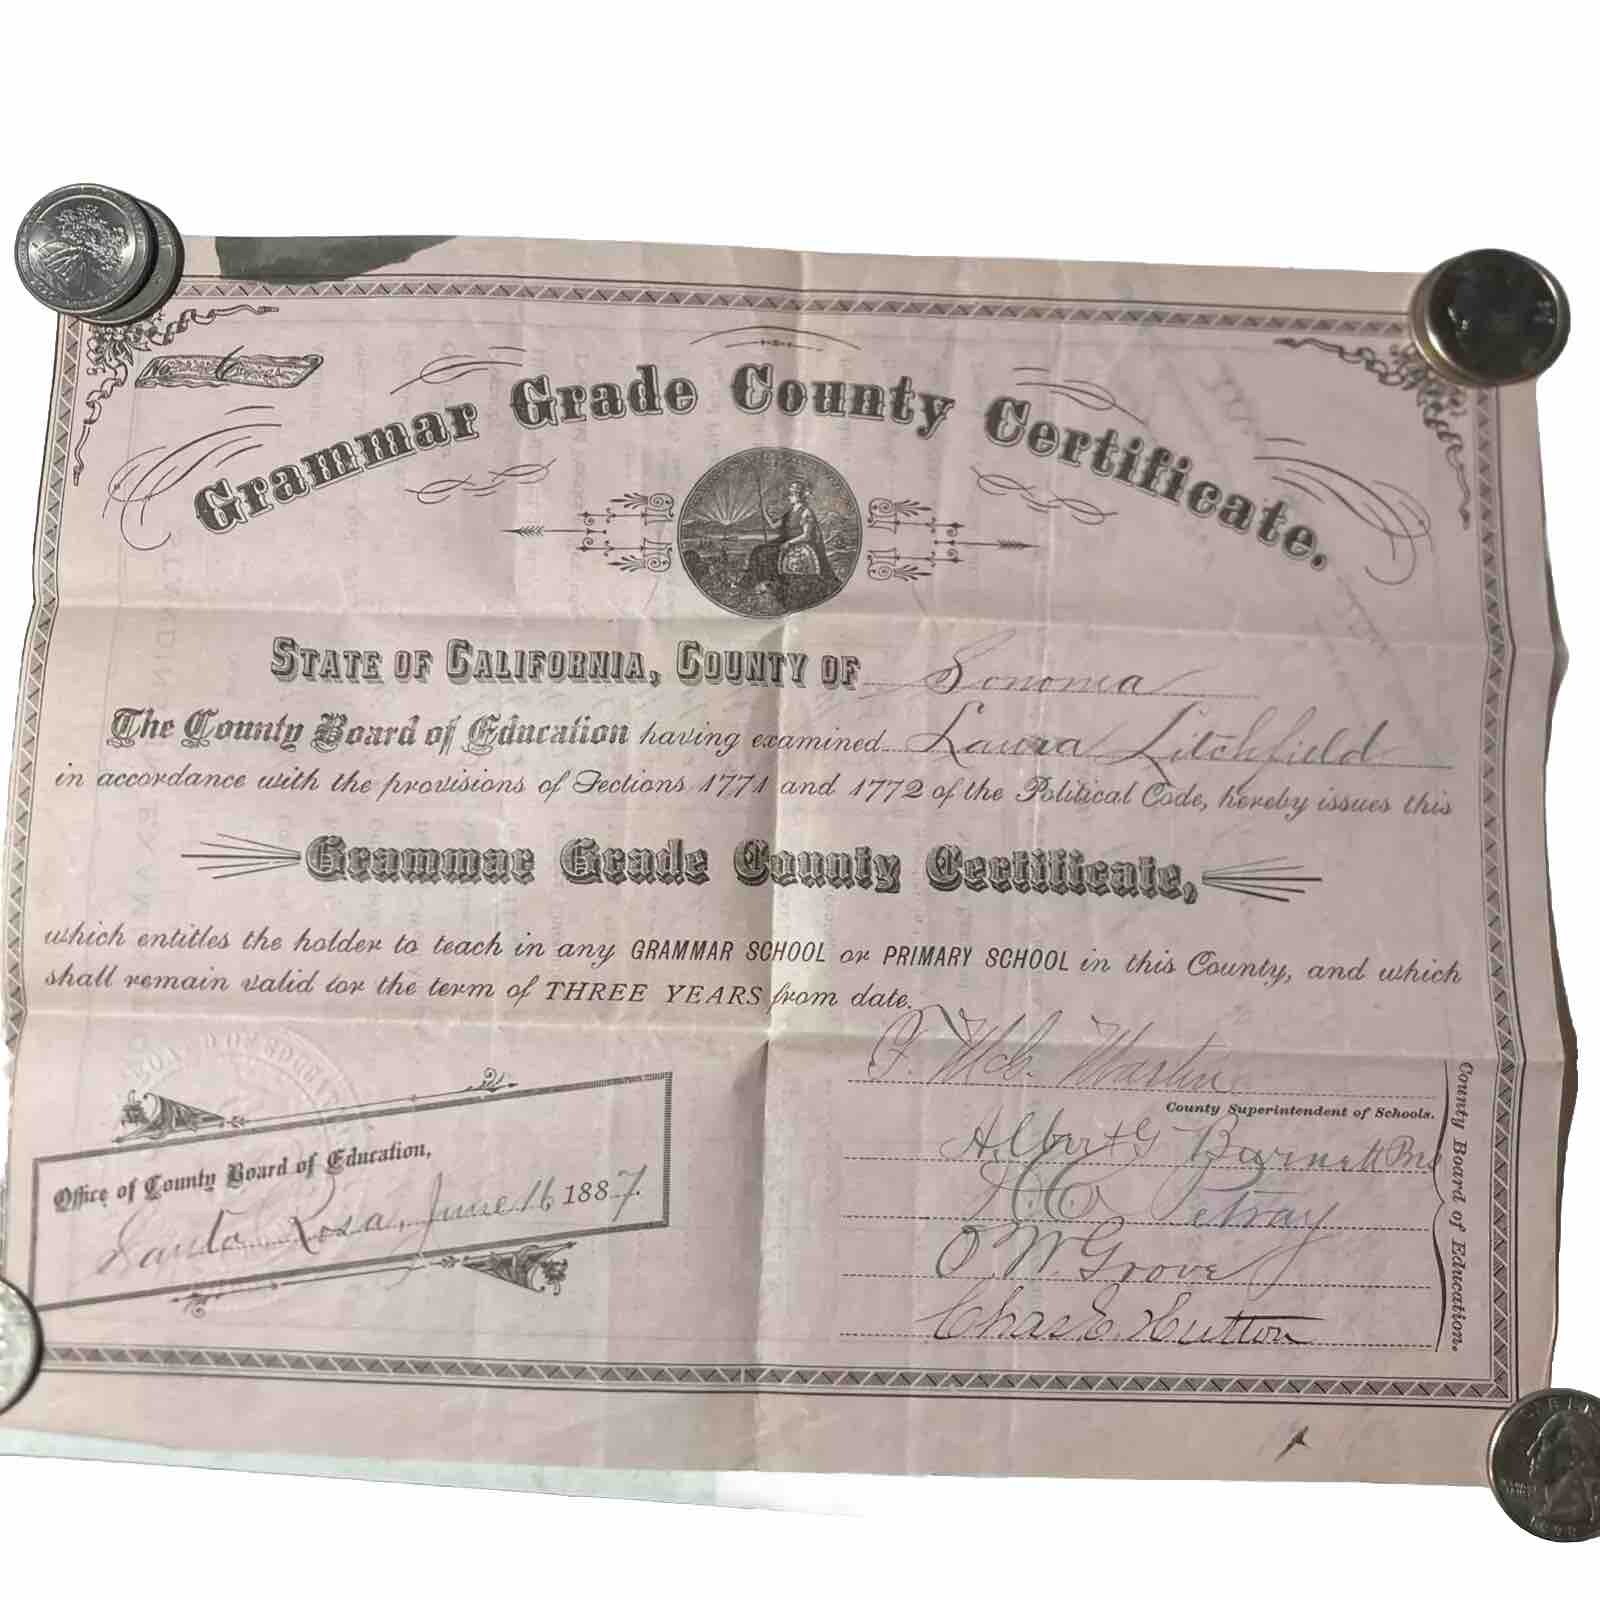 No. 6
Grammar Grade County Certificate.
STATE OF CALIFORNIA, COUNTY OF Sonoma
The County Board of Education having examined Laura Litchfield
in accordance with the provisions of Sections 1771 and 1772 of the Political Code, hereby issues this
Grammar Grade County Certificate,
which entitles the holder to teach in any GRAMMAR SCHOOL or PRIMARY SCHOOL in this County, and which
shall remain valid for the term of THREE YEARS from date.
Office of County Board of Education,
Santa Rosa, June 16 1887.
F. McG. Martin
County Superintendent of Schools.
Albert G Barnett Pres
H C Petray
O. W. Grove
Chas E. Hutton
County Board of Education.